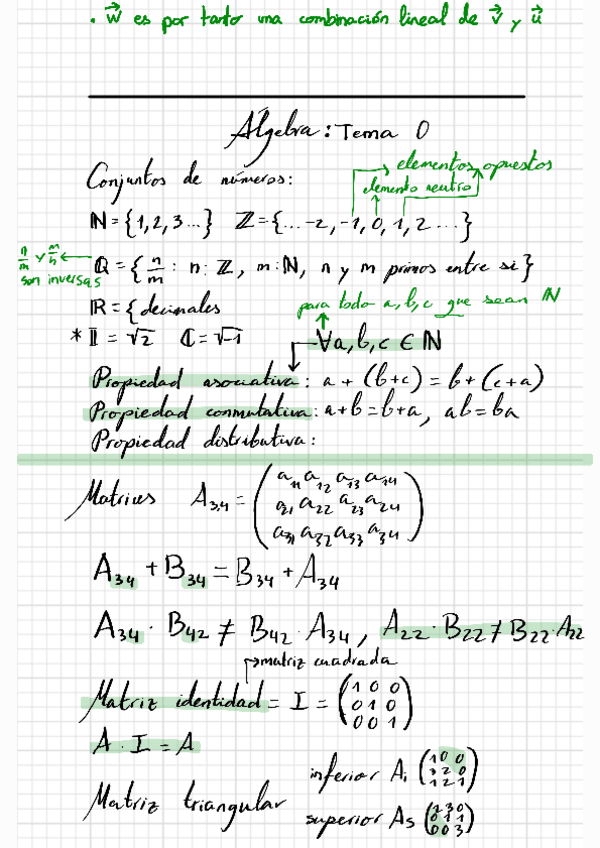 . w⃗ es por tanto una combinación lineal de v⃗ y u⃗
Álgebra: Tema 0
Conjuntos de números:
elementos opuestos
elemento neutro
ℕ = {1, 2, 3 ...} ℤ = {... -2, -1, 0, 1, 2 ...}
n/m y m/n son inversas
ℚ = { n/m : n: ℤ, m: ℕ, n y m primos entre si }
ℝ = { decimales
para todo a, b, c que sean ℕ
* 𝕀 = √2 ℂ = √-1
∀a, b, c ∈ ℕ
Propiedad asociativa: a + (b+c) = b + (c+a)
Propiedad conmutativa: a+b = b+a, ab = ba
Propiedad distributiva:
Matrices A₃,₄ = ( a₁₁ a₁₂ a₁₃ a₁₄
a₂₁ a₂₂ a₂₃ a₂₄
a₃₁ a₃₂ a₃₃ a₃₄ )
A₃₄ + B₃₄ = B₃₄ + A₃₄
A₃₄ · B₄₂ ≠ B₄₂ · A₃₄, A₂₂ · B₂₂ ≠ B₂₂ · A₂₂
matriz cuadrada
Matriz identidad = I = ( 1 0 0
0 1 0
0 0 1 )
A · I = A
Matriz triangular
inferior Aᵢ ( 1 0 0
3 2 0
1 2 1 )
superior As ( 2 3 0
0 1 1
0 0 3 )